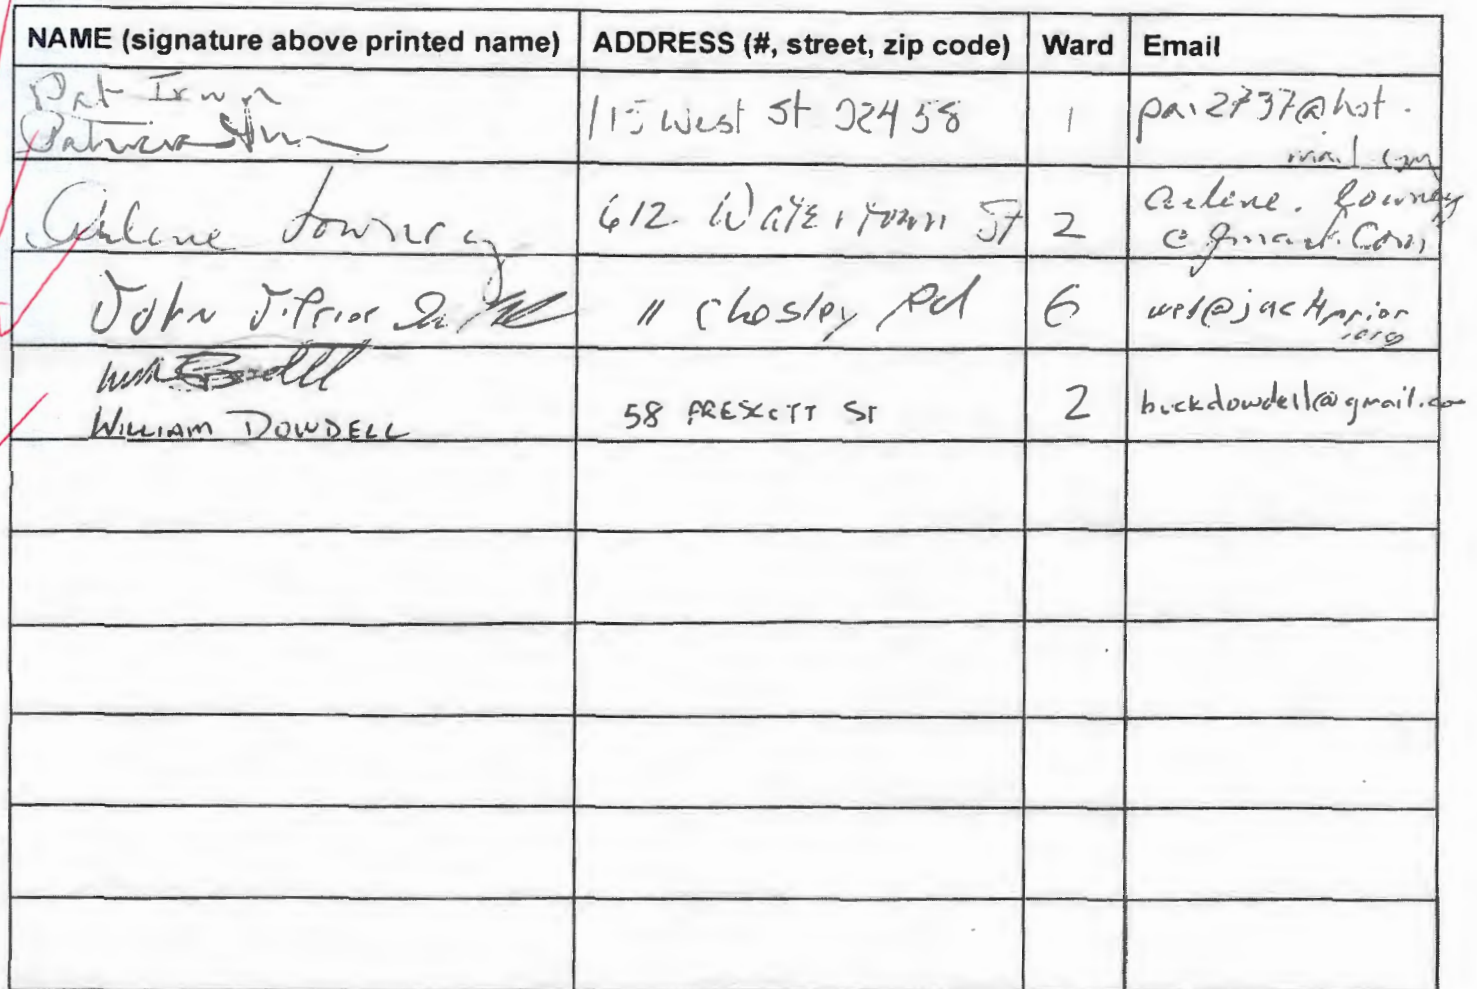 NAME (signature above printed name) ADDRESS (#, street, zip code) Ward Email
Pat Irwin
Patricia 115 West St 02458 1 pai2737@hot.
mail.com
Arlene Lowney 612 Watertown St 2 arlene.lowney
@gmail.com
John J. Prior Jr 11 Chesley Rd 6 @jackprior
.org
WILLIAM DOWDELL 58 PRESCOTT ST 2 buckdowdell@gmail.co